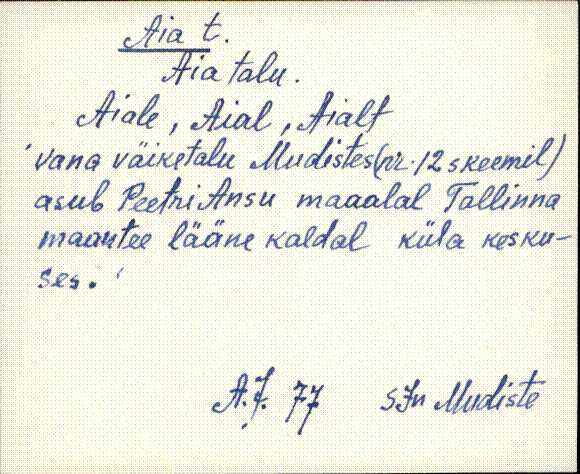 Aia t.
Aia talu.
Aiale, Aial, Aialt
'vana väiketalu Mudistes (nr. 12 skeemil)
asub Peetri Ansu maaalal Tallinna
maantee lääne kaldal küla kesku-
ses.'
A.J. 77 SJn Mudiste